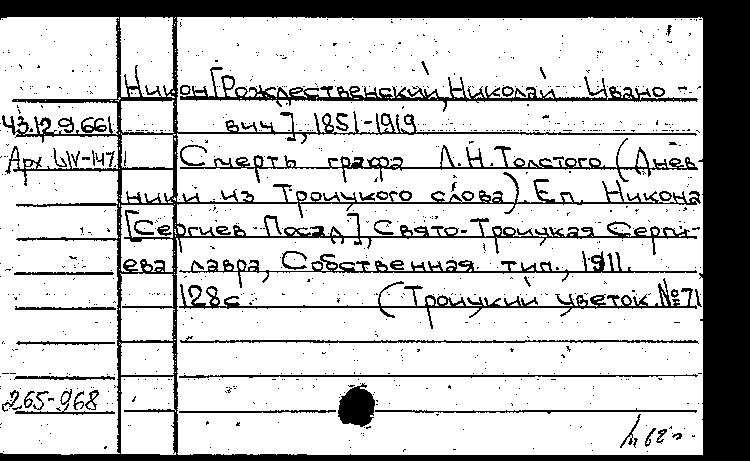 Никон [Рождественский, Николай Ивано-
43.12.9.661 вич], 1851-1919
Арх. Смерть графа Л.Н.Толстого (Днев-
ники из Троицкого слова). Еп. Никона
[Сергиев Посад], Свято-Троицкая Серги-
ева лавра, Собственная тип., 1911.
128с. (Троицкий цветок. №71
265-968